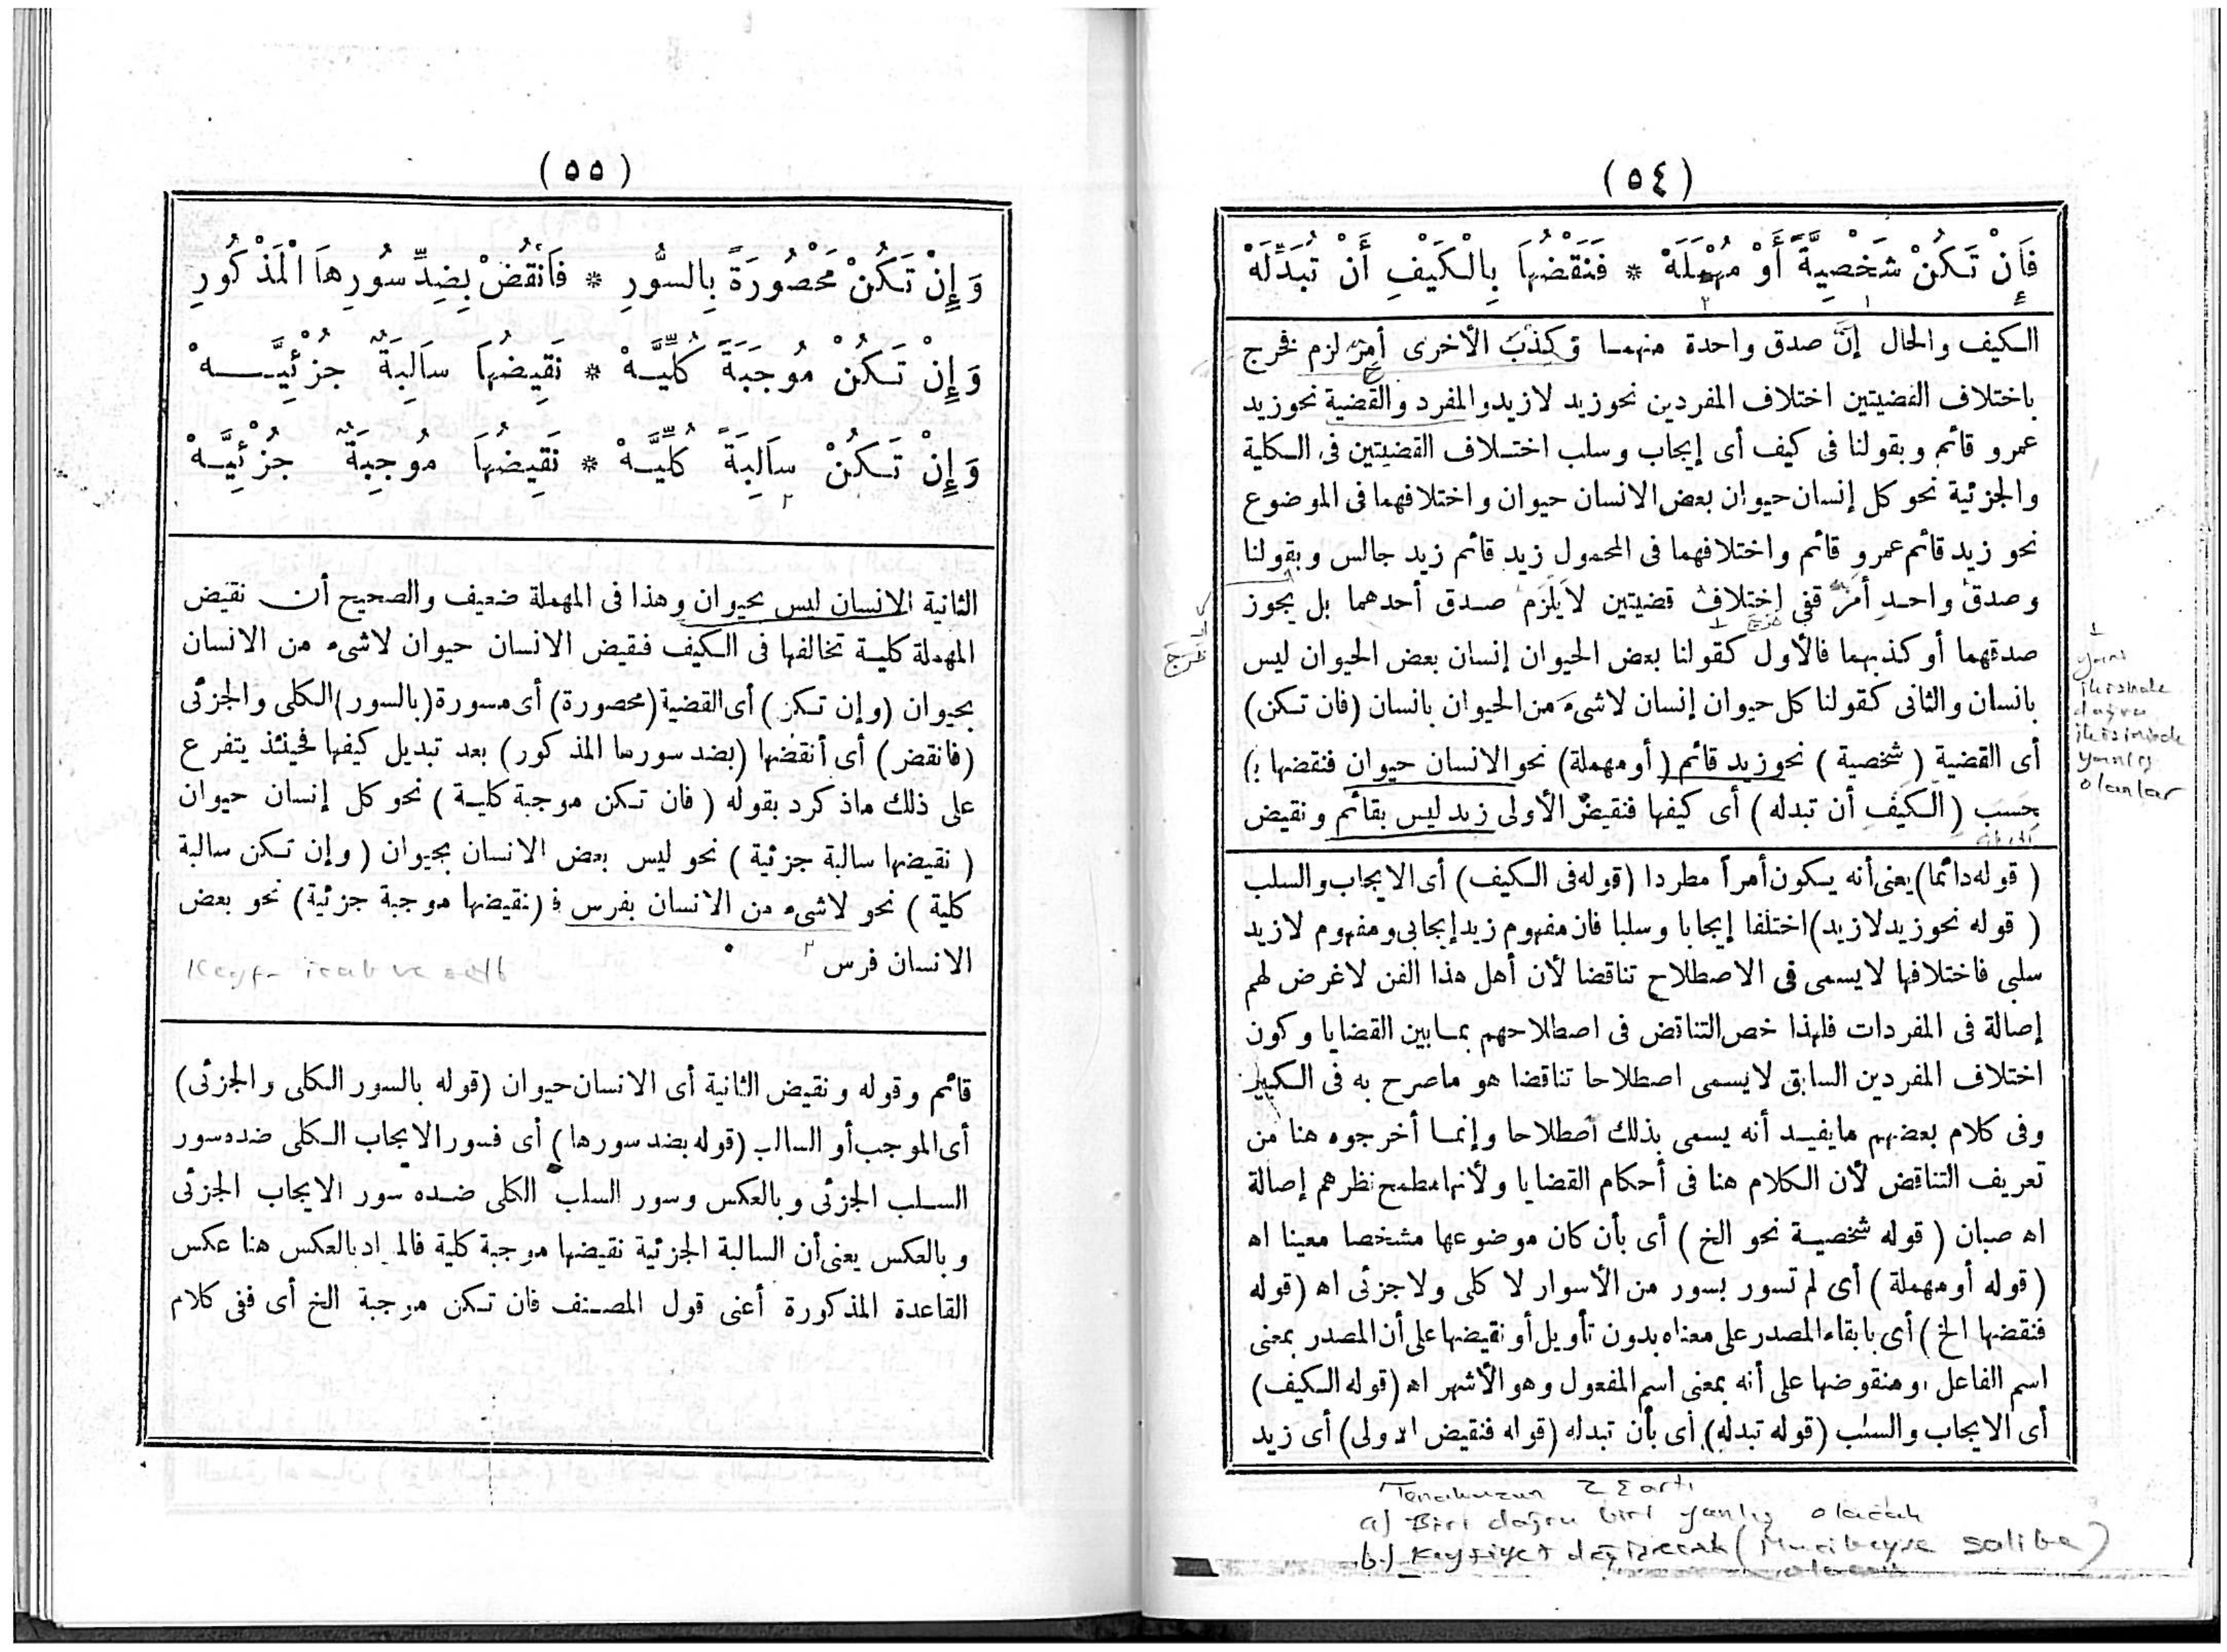 (٥٤)
فَإِنْ تَكُنْ شَخْصِيَّةً أَوْ مُهْمَلَهْ * فَنَقْضُهَا بِالْكَيْفِ أَنْ تُبَدِّلَهْ
الكيف والحال إنَّ صدق واحدة منهما وكذبَ الأخرى أمرٌ لزم فخرج
باختلاف القضيتين اختلاف المفردين نحو زيد لازيد والمفرد والقضية نحو زيد
عمرو قائم وبقولنا فى كيف أى إيجاب وسلب اختلاف القضيتين فى الكلية
والجزئية نحو كل إنسان حيوان بعض الانسان حيوان واختلافهما فى الموضوع
نحو زيد قائم عمرو قائم واختلافهما فى المحمول زيد قائم زيد جالس وبقولنا
وصدق واحد أمر قفي اختلاف قضيتين لا يلزم صدق أحدهما بل يجوز
صدقهما أو كذبهما فالأول كقولنا بعض الحيوان إنسان بعض الحيوان ليس
بانسان والثانى كقولنا كل حيوان إنسان لاشىء من الحيوان بانسان (فان تكن)
أى القضية (شخصية) نحو زيد قائم (أو مهملة) نحو الانسان حيوان فنقضها ؛)
حسب (الكيف أن تبدله) أى كيفها فنقيض الأولى زيد ليس بقائم ونقيض
(قوله دائما) يعنى أنه يكون أمرأ مطردا (قوله فى الكيف) أى الايجاب والسلب
(قوله نحو زيد لازيد) اختلفا إيجابا وسلبا فان مفهوم زيد إيجابى ومفهوم لازيد
سلبى فاختلافها لا يسمى فى الاصطلاح تناقضا لأن أهل هذا الفن لاغرض لهم
إصالة فى المفردات فلهذا خص التناقض فى اصطلاحهم بما بين القضايا وكون
اختلاف المفردين السابق لايسمى اصطلاحا تناقضا هو ماصرح به فى الكبير
وفى كلام بعضهم مايفيد أنه يسمى بذلك اصطلاحا وإنما أخرجوه هنا من
تعريف التناقض لأن الكلام هنا فى أحكام القضايا ولأنها مطمح نظرهم إصالة
اه صبان (قوله شخصية نحو الخ) أى بأن كان موضوعها مشخصا معينا اه
(قوله أو مهملة) أى لم تسور بسور من الأسوار لا كلى ولا جزئى اه (قوله
فنقضها الخ) أى بابقاء المصدر على معناه بدون تأويل أو نقيضها على أن المصدر بمعنى
اسم الفاعل، ومنقوضها على أنه بمعنى اسم المفعول وهو الأشهر اه (قوله الكيف)
أى الايجاب والسلب (قوله تبدله) أى بأن تبدله (قوله فنقيض الاولى) أى زيد
yani
ikisinde
doğru
ikisinde
yanlış
olanlar
Tenakuzun 2 Şartı
a) Biri doğru biri yanlış olacak
b) Keyfiyet değişecek (Mucibeyse salibe)
olacak
(٥٥)
وَإِنْ تَكُنْ مَحْصُورَةً بِالسُّورِ * فَانْقُضْ بِضِدِّ سُورِهَا الْمَذْكُورِ
وَإِنْ تَكُنْ مُوجَبَةً كُلِّيَّهْ * نَقِيضُهَا سَالِبَةٌ جُزْئِيَّهْ
وَإِنْ تَكُنْ سَالِبَةً كُلِّيَّهْ * نَقِيضُهَا مُوجِبَةٌ جُزْئِيَّهْ
الثانية الانسان ليس بحيوان وهذا فى المهملة ضعيف والصحيح أن نقيض
المهملة كلية تخالفها فى الكيف فنقيض الانسان حيوان لاشىء من الانسان
بحيوان (وإن تكن) أى القضية (محصورة) أى مسورة (بالسور) الكلى والجزئى
(فانقض) أى أنقضها (بضد سورها المذكور) بعد تبديل كيفها فحينئذ يتفرع
على ذلك ماذكرد بقوله (فان تكن موجبة كلية) نحو كل إنسان حيوان
(نقيضها سالبة جزئية) نحو ليس بعض الانسان بحيوان (وإن تكن سالبة
كلية) نحو لاشىء من الانسان بفرس فـ (نقيضها موجبة جزئية) نحو بعض
الانسان فرس
Keyf- icab ve selb
قائم وقوله ونقيض الثانية أى الانسان حيوان (قوله بالسور الكلى والجزئى)
أى الموجب أو السالب (قوله بضد سورها) أى فسور الايجاب الكلى ضده سور
السلب الجزئى وبالعكس وسور السلب الكلى ضده سور الايجاب الجزئى
وبالعكس يعنى أن السالبة الجزئية نقيضها موجبة كلية فالمراد بالعكس هنا عكس
القاعدة المذكورة أعنى قول المصنف فان تكن موجبة الخ أى ففى كلام